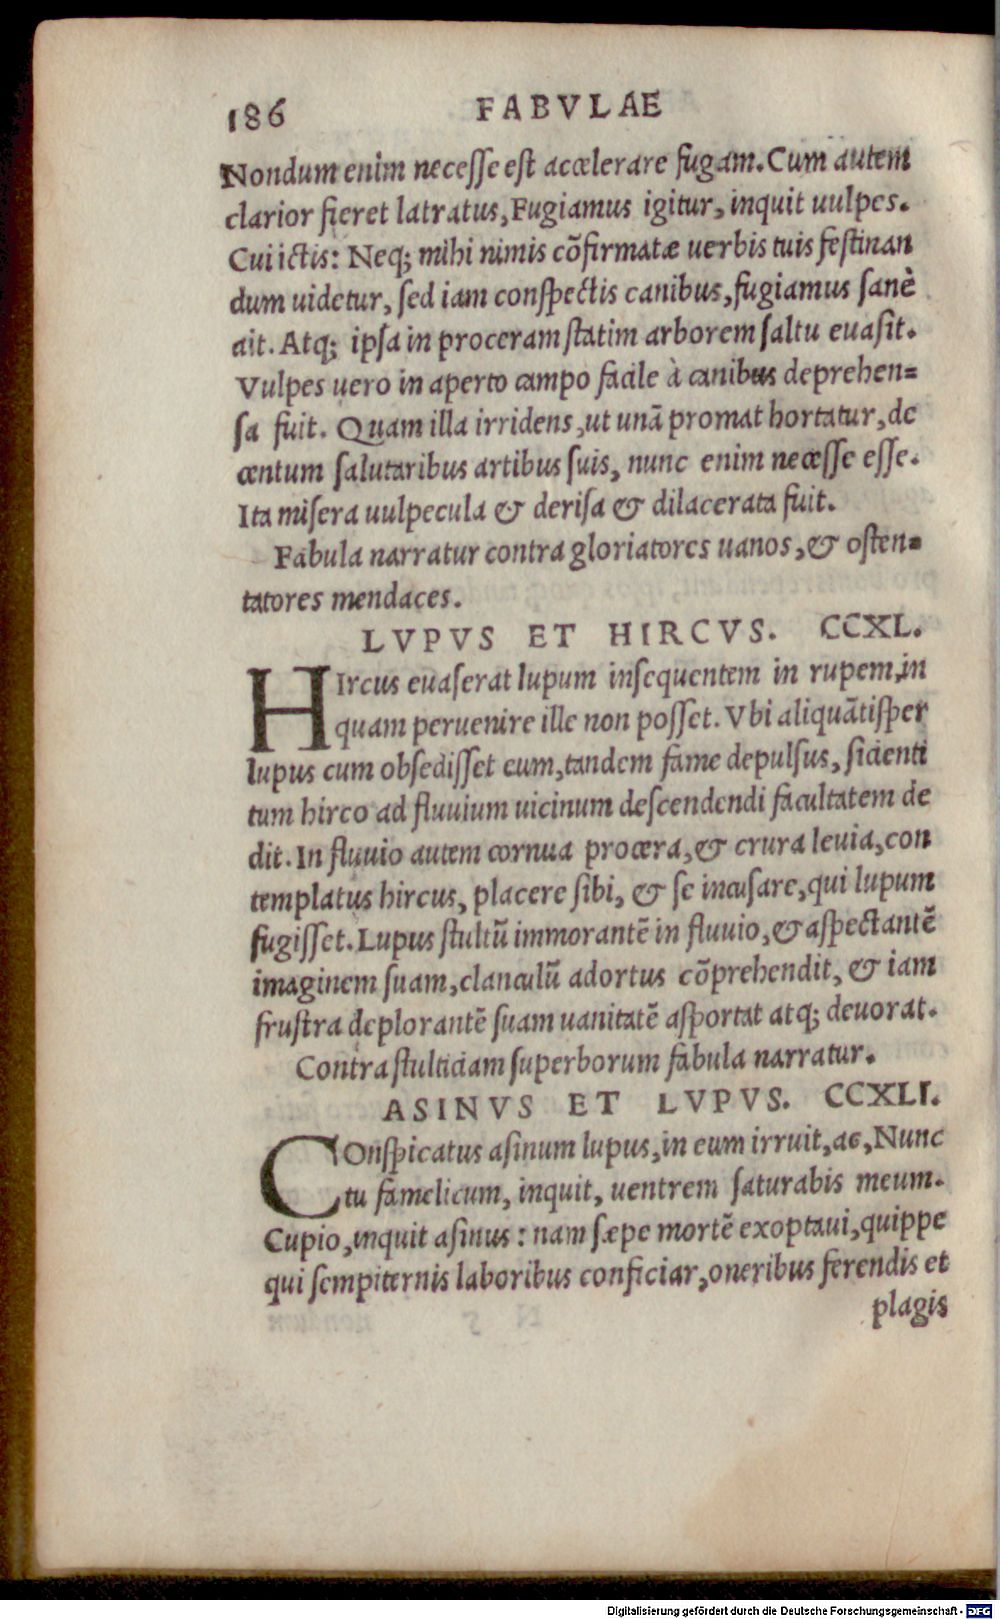 186 FABVLAE
Nondum enim necesse est accelerare fugam. Cum autem
clarior fieret latratus, Fugiamus igitur, inquit uulpes.
Cui ictis: Neq; mihi nimis cõfirmatæ uerbis tuis festinan
dum uidetur, sed iam conspectis canibus, fugiamus sanè
ait. Atq; ipsa in proceram statim arborem saltu euasit.
Vulpes uero in aperto campo facile à canibus deprehen=
sa fuit. Quam illa irridens, ut unã promat hortatur, de
centum salutaribus artibus suis, nunc enim necesse esse.
Ita misera uulpecula & derisa & dilacerata fuit.
Fabula narratur contra gloriatores uanos, & osten=
tatores mendaces.
LVPVS ET HIRCVS. CCXL.
HIrcus euaserat lupum insequentem in rupem, in
quam peruenire ille non posset. Vbi aliquãtisper
lupus cum obsedisset eum, tandem fame depulsus, sicienti
tum hirco ad fluuium uicinum descendendi facultatem de
dit. In fluuio autem cornua procera, & crura leuia, con
templatus hircus, placere sibi, & se incusare, qui lupum
fugisset. Lupus stultũ immorantẽ in fluuio, & aspectantẽ
imaginem suam, clanculũ adortus cõprehendit, & iam
frustra deplorantẽ suam uanitatẽ asportat atq; deuorat.
Contra stulticiam superborum fabula narratur.
ASINVS ET LVPVS. CCXLI.
COnspicatus asinum lupus, in eum irruit, ac, Nunc
tu famelicum, inquit, uentrem saturabis meum.
Cupio, inquit asinus: nam sæpe mortẽ exoptaui, quippe
qui sempiternis laboribus conficiar, oneribus ferendis et
plagis
Digitalisierung gefördert durch die Deutsche Forschungsgemeinschaft - DFG